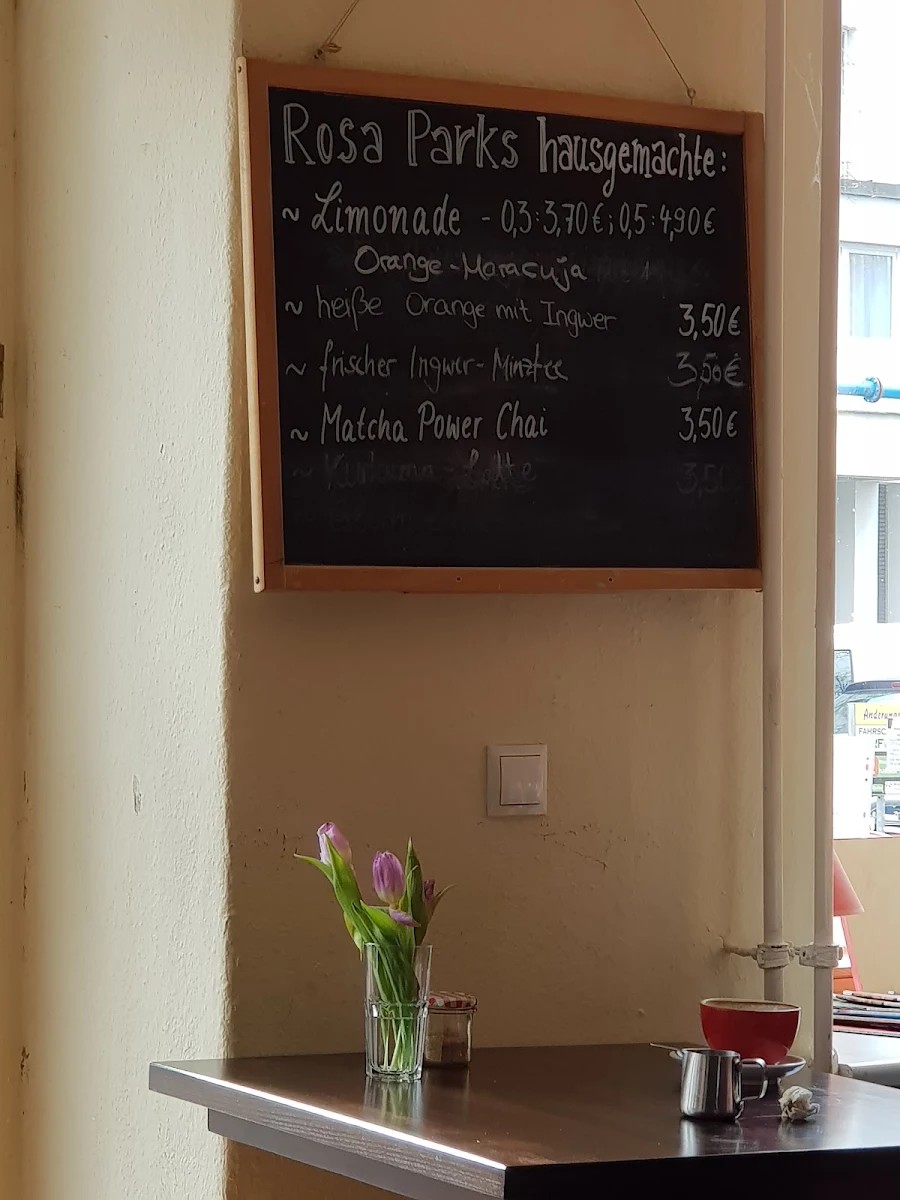 Rosa Parks hausgemachte:
~ Limonade - 0,3:3,70€; 0,5:4,90€
Orange-Maracuja
~ heiße Orange mit Ingwer 3,50€
~ frischer Ingwer-Minztee 3,50€
~ Matcha Power Chai 3,50€
~ Kurkuma-Latte
FAHRSC